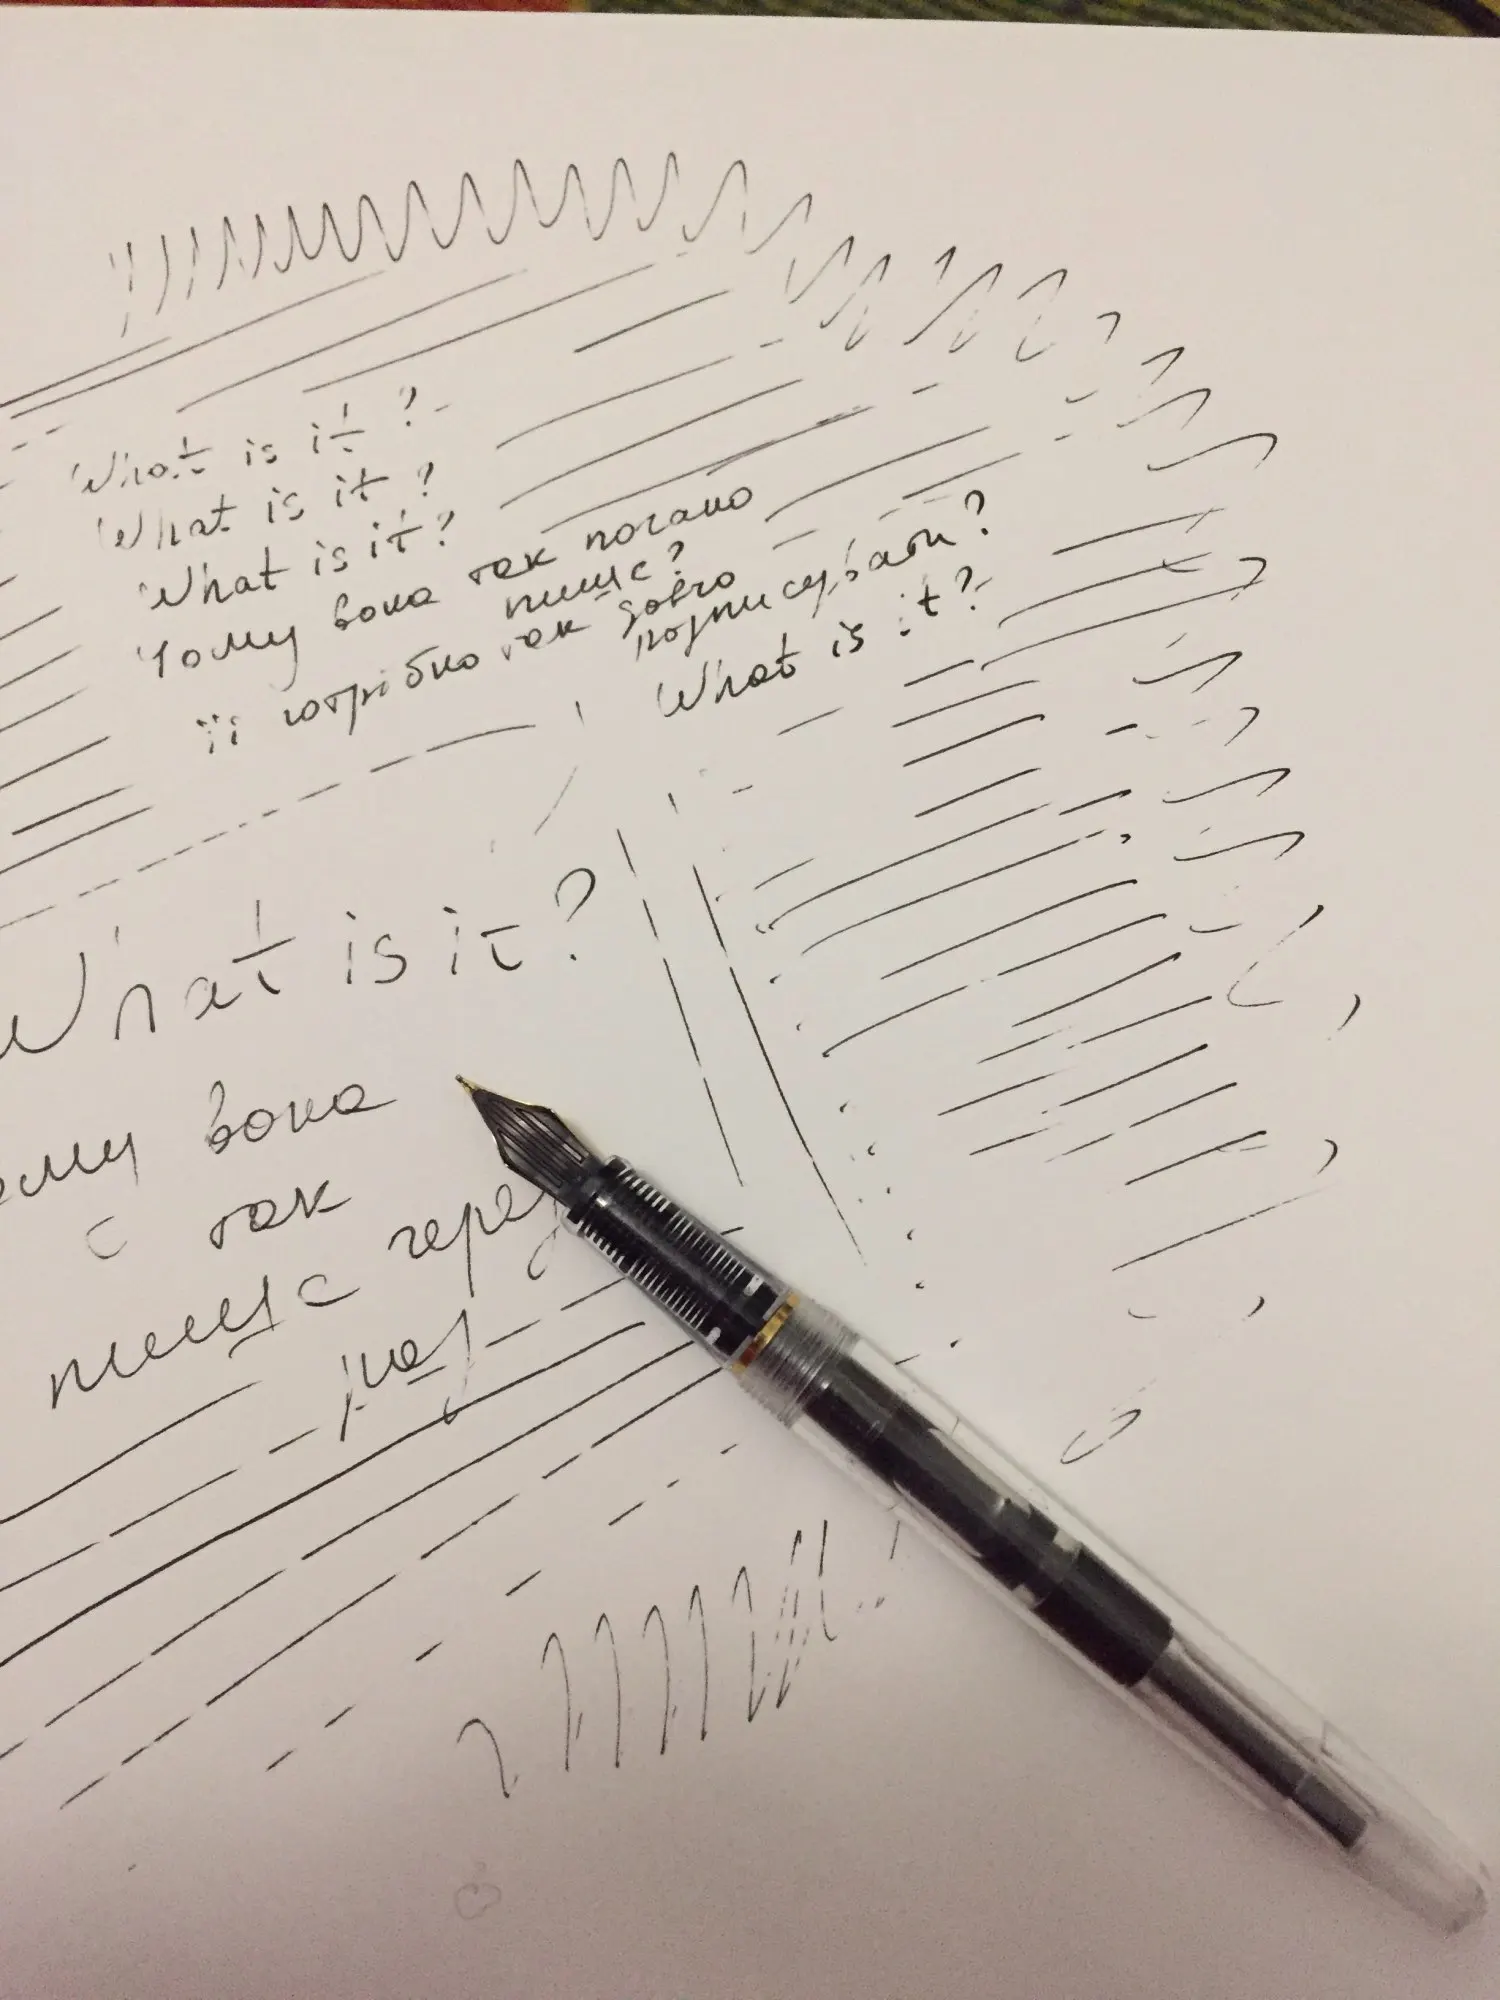 What is it?
What is it?
What is it?
Чому вона так погано
пише?
її потрібно так довго
подписувати?
What is it?
What is it?
ему вона
є так
пише через
раз